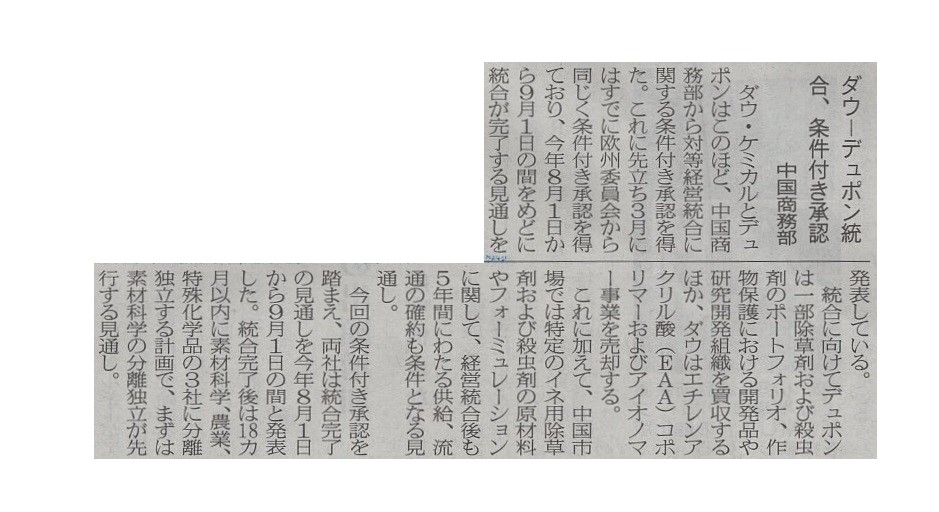 ダウ―デュポン統
合、条件付き承認
中国商務部
ダウ・ケミカルとデュ
ポンはこのほど、中国商
務部から対等経営統合に
関する条件付き承認を得
た。これに先立ち3月に
はすでに欧州委員会から
同じく条件付き承認を得
ており、今年8月1日か
ら9月1日の間をめどに
統合が完了する見通しを
発表している。
統合に向けてデュポン
は一部除草剤および殺虫
剤のポートフォリオ、作
物保護における開発品や
研究開発組織を買収する
ほか、ダウはエチレンア
クリル酸（EAA）コポ
リマーおよびアイオノマ
ー事業を売却する。
これに加えて、中国市
場では特定のイネ用除草
剤および殺虫剤の原材料
やフォーミュレーション
に関して、経営統合後も
5年間にわたる供給、流
通の確約も条件となる見
通し。
今回の条件付き承認を
踏まえ、両社は統合完了
の見通しを今年8月1日
から9月1日の間と発表
した。統合完了後は18カ
月以内に素材科学、農業、
特殊化学品の3社に分離
独立する計画で、まずは
素材科学の分離独立が先
行する見通し。